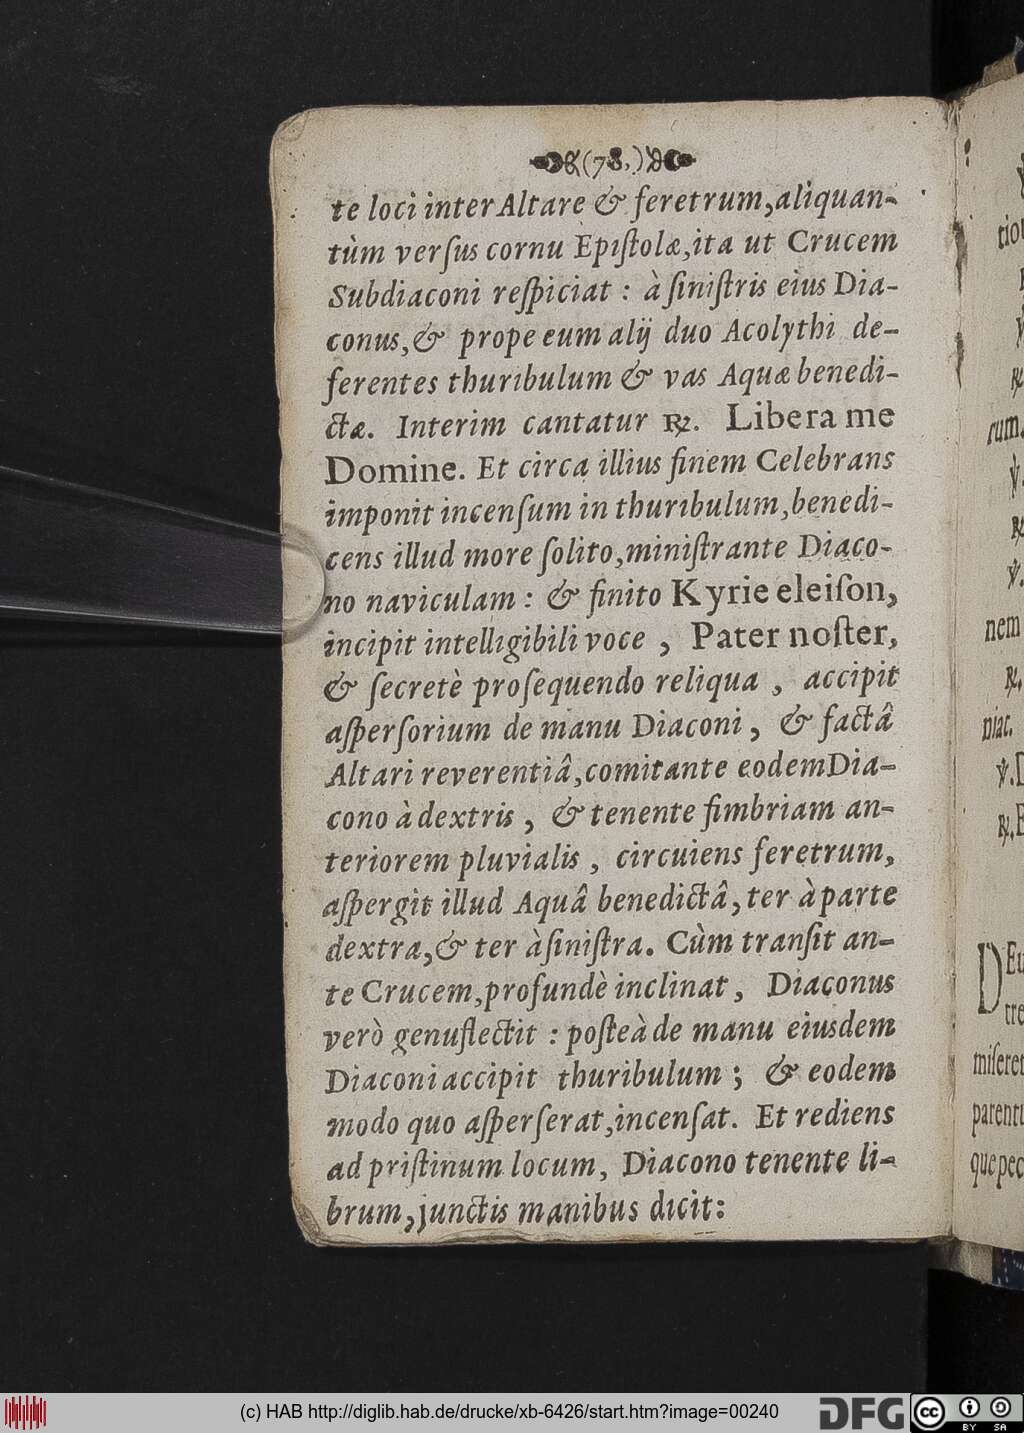 (78.)
te loci inter Altare & feretrum, aliquan-
tùm verſus cornu Epiſtolæ, ita ut Crucem
Subdiaconi reſpiciat : à ſiniſtris eius Dia-
conus, & prope eum alij duo Acolythi de-
ferentes thuribulum & vas Aquæ benedi-
ctæ. Interim cantatur ℟. Libera me
Domine. Et circa illius finem Celebrans
imponit incenſum in thuribulum, benedi-
cens illud more ſolito, miniſtrante Diaco-
no naviculam : & finito Kyrie eleiſon,
incipit intelligibili voce , Pater noſter,
& ſecretè proſequendo reliqua , accipit
aſperſorium de manu Diaconi , & factâ
Altari reverentiâ, comitante eodem Dia-
cono à dextris , & tenente fimbriam an-
teriorem pluvialis , circuiens feretrum,
aſpergit illud Aquâ benedictâ, ter à parte
dextra, & ter à ſiniſtra. Cùm tranſit an-
te Crucem, profundè inclinat , Diaconus
verò genuflectit : poſteà de manu eiusdem
Diaconi accipit thuribulum ; & eodem
modo quo aſperſerat, incenſat. Et rediens
ad priſtinum locum, Diacono tenente li-
brum, junctis manibus dicit:
tio
℟
rum.
℣.
℟
℣.
nem
℟.
niac.
℣. D
℟. E
DEu
tre
miſerer
parentu
que pec
(c) HAB http://diglib.hab.de/drucke/xb-6426/start.htm?image=00240
DFG
cc
BY SA